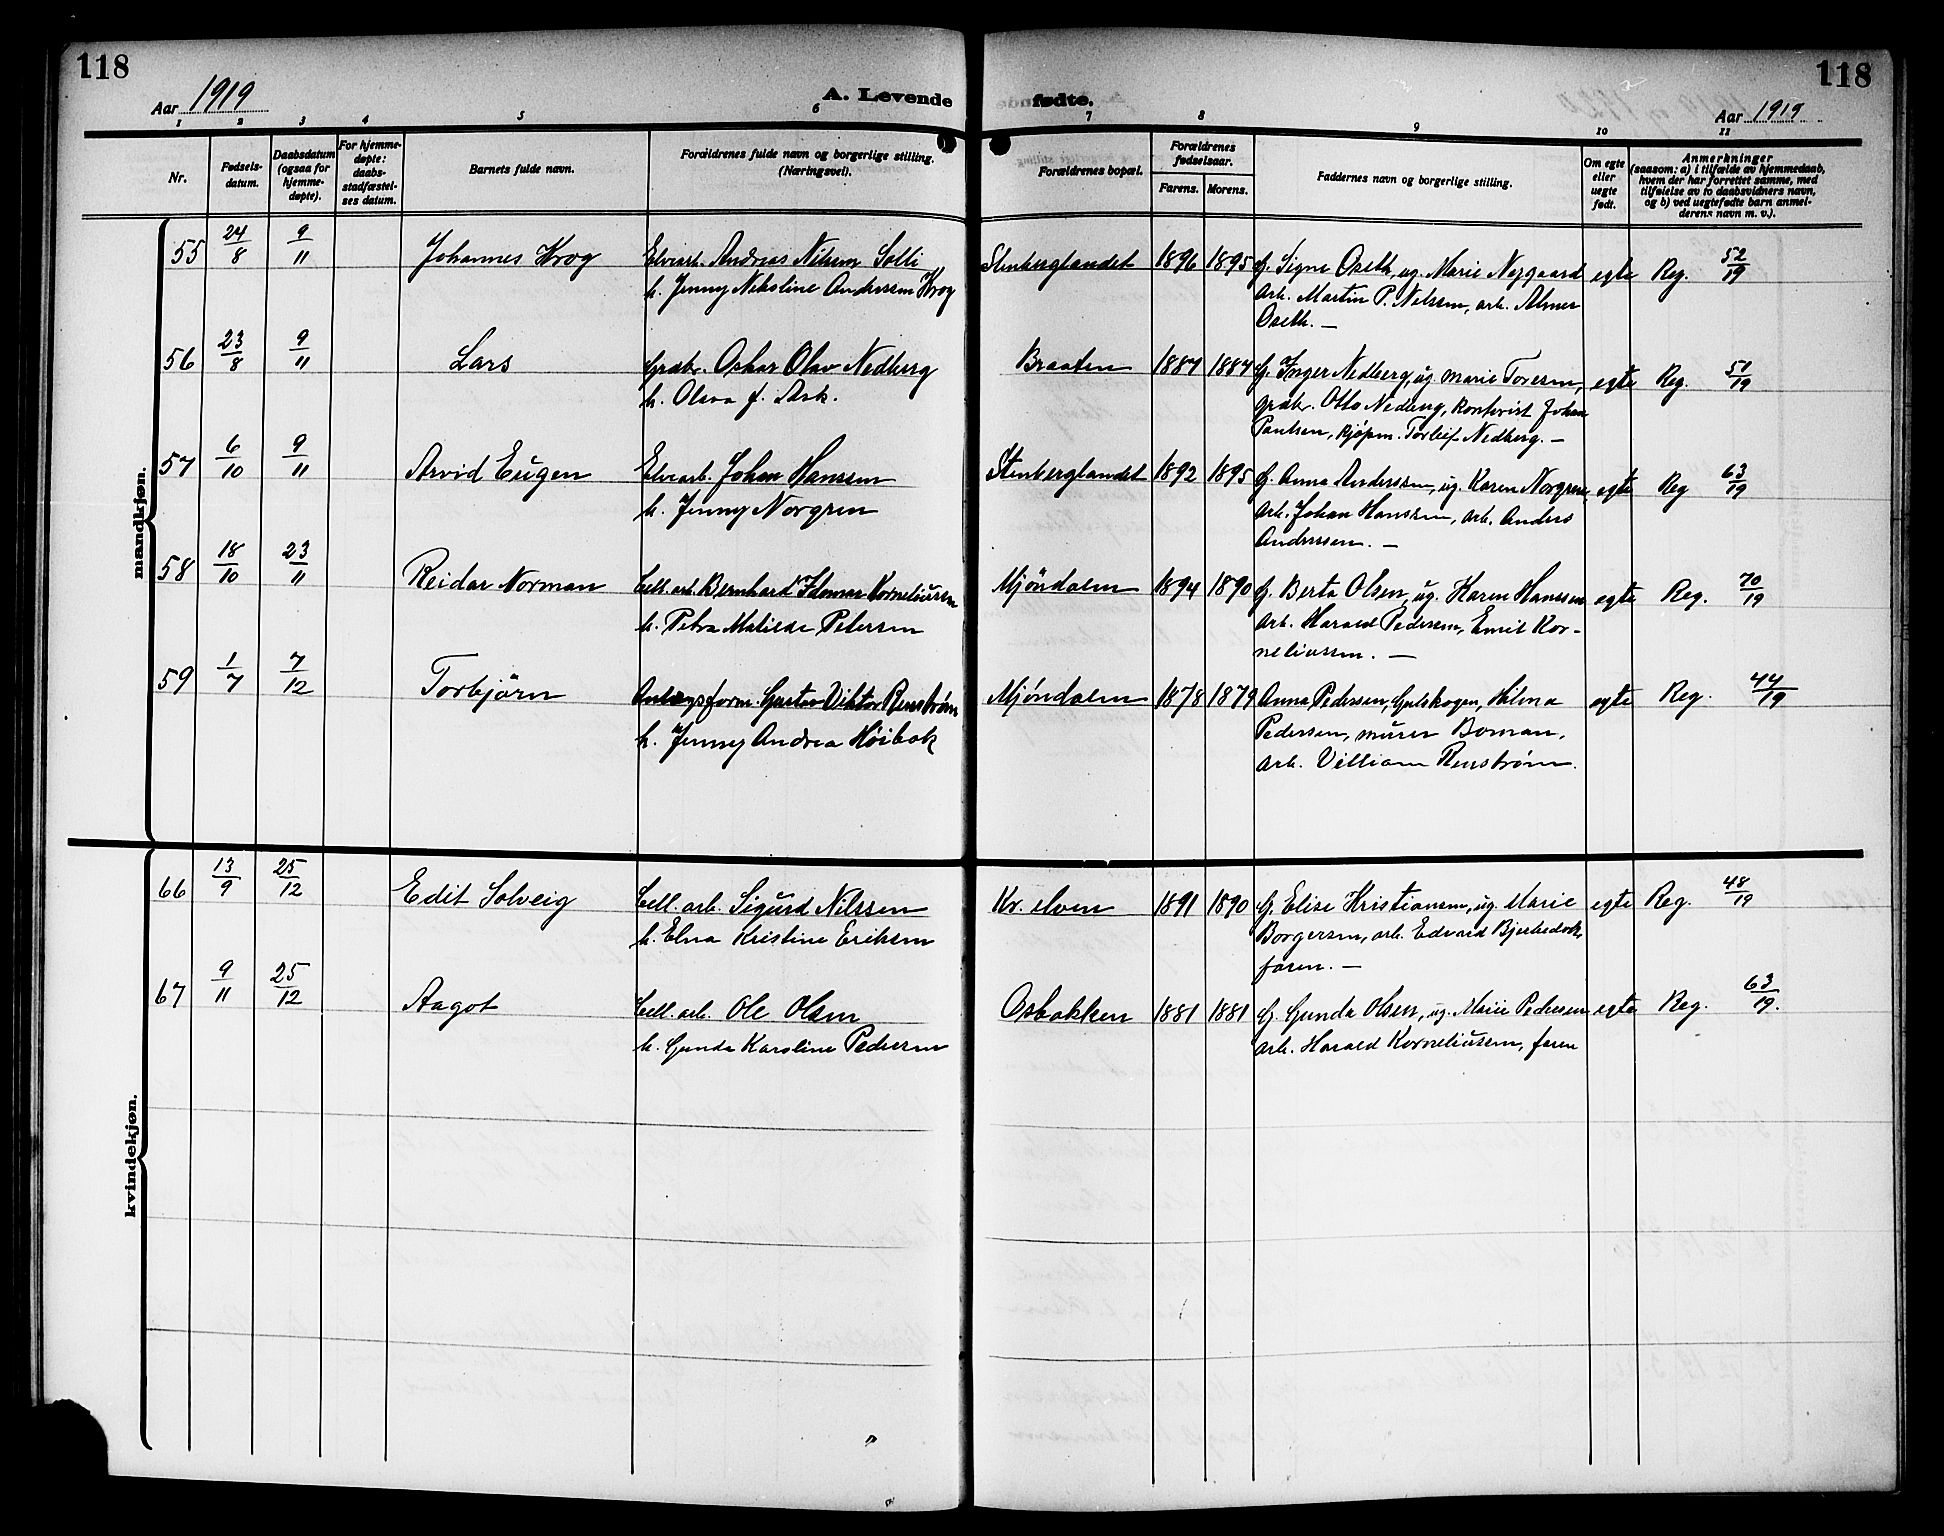 118
Aar 1919
A. Levende
fødte.
Aar 1919
118
1 2 3 4 5 6 7 8 9 10 11
Nr.
Fødsels-
datum.
Daabsdatum
(ogsaa for
hjemme-
døpte).
For hjemme-
døpte:
daabs-
stadfæstel-
ses datum.
Barnets fulde navn.
Forældrenes fulde navn og borgerlige stilling.
(Næringsvei).
Forældrenes bopæl.
Forældrenes
fødselsaar.
Farens. Morens.
Faddernes navn og borgerlige stilling.
Om egte
eller
uegte
født.
Anmerkninger
(saasom: a) i tilfælde av hjemmedaab,
hvem der har forrettet samme, med
tilføielse av to daabsvidners navn,
og b) ved uegtefødte barn anmel-
derens navn m. v.).
mandkjøn.
55 24/8 9/11 Johannes Krog Elvearb. Andreas Nilsen Solli Stenberglandet 1896 1895 G. Signe Oseth, ug. Marie Nygaard egte Reg. 52/19
h. Jenny Nikoline Anderssen Krog arb. Martin P. Nelssen, arb. Almer
Oseth. —
56 23/8 9/11 Lars Oskar Olav Nedberg Braaten 1884 1884 G. Inger Nedberg, ug. Marie Toresen, egte Reg. 51/19
h. Olava f. Ask. Otto Nedberg, kontorist Johan
Paulsen, kjøpm. Torleif Nedberg. —
57 6/10 9/11 Arvid Eugen Elvearb. Johan Hanssen Stenberglandet 1892 1895 G. Anna Anderssen, ug. Karen Norgren, egte Reg 63/19
h. Jenny Norgren arb. Johan Hanssen, arb. Anders
Anderssen. —
58 18/10 23/11 Reidar Norman Cell. arb. Bernhard Hlomar Korneliussen Mjöndalen 1894 1890 G. Berta Olsen, ug. Karen Hanssen egte Reg. 70/19
h. Petra Matilde Petersen arb. Harald Pedersen, Emil Kor-
neliussen. —
59 1/7 7/12 Torbjörn Anlægsform. Gustav Viktor Renström Mjöndalen 1878 1879 Anna Pedersen, Gulskogen, Hilma egte Reg. 44/19
h. Jenny Andrea Höibak Pedersen, murer Boman,
arb. Villiam Renström.
kvindekjøn.
66 13/9 25/12 Edit Solveig Cell. arb. Sigurd Nilssen Kr. elven 1891 1890 G. Elise Kristiansen, ug. Marie egte Reg. 48/19
h. Elna Kristine Eriksen Borgersen, arb. Edvard
faren. —
67 9/11 25/12 Aagot Cell. arb. Ole Olsen Osbakken 1881 1881 G. Gunda Olsen, ug. Marie Pedersen egte Reg. 63/19.
h. Gunda Karoline Pedersen arb. Harald Korneliussen, faren